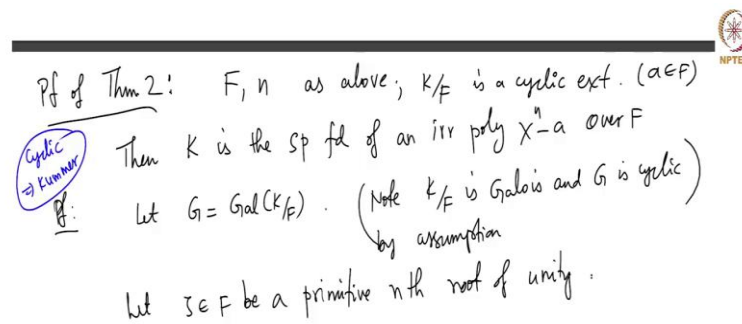 NPTEL
Pf of Thm 2: F, n as above; K/F is a cyclic ext. (a∈F)
Then K is the sp fd of an irr poly Xⁿ-a over F
Cyclic
⇒ Kummer
Pf: Let G = Gal(K/F). (Note K/F is Galois and G is cyclic)
by assumption
Let ζ ∈ F be a primitive nth root of unity.